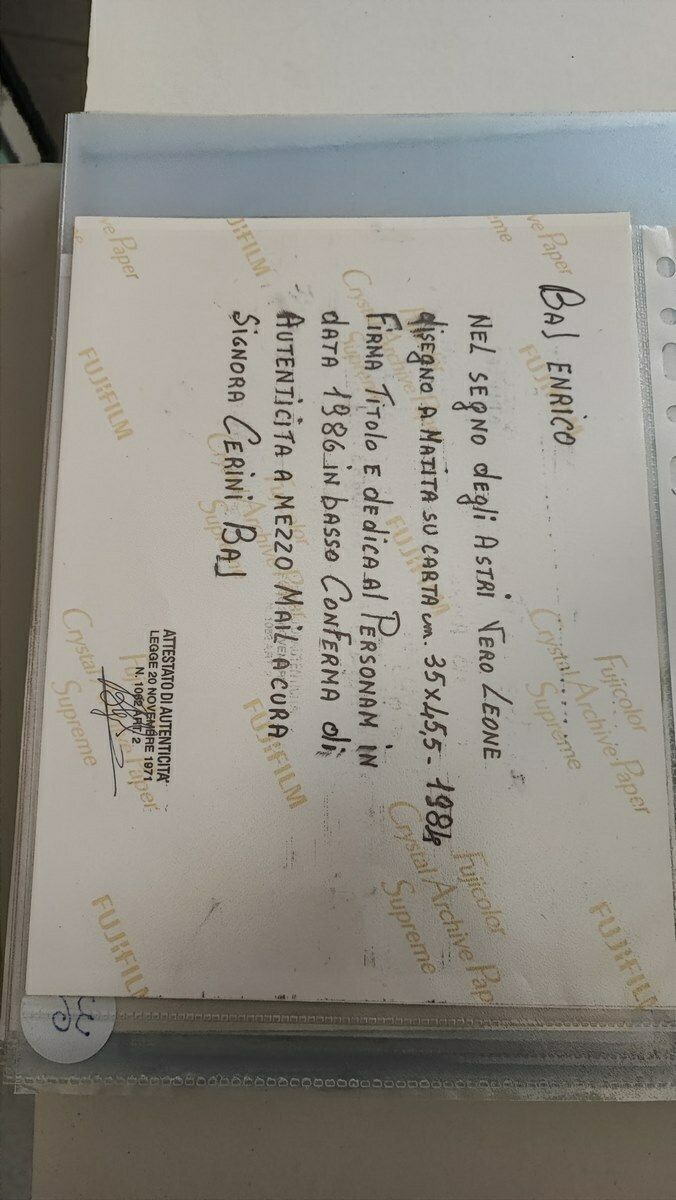 BAJ ENRICO
NEL SEGNO degli ASTRI VERO LEONE
disEGNO A MATITA SU CARTA cm. 35x45,5 - 1984
FIRMA TITOLO E dEdICA Al PERSONAM iN
dATA 1986 iN bASSO CONFERMA di
AUTENTICITA A MEZZO MAIL A CURA
SIGNORA CERINI BAJ
ATTESTATO DI AUTENTICITA'
LEGGE 20 NOVEMBRE 1971
N. 1062 ART. 2
ve Paper
FUJIFILM
FUJIFILM
me
ve Paper
FUJIFILM
Fujicolor
Crystal Archive Paper
Supreme
Fujicolor
Crystal Archive Pap
Supreme
FUJIFILM
Crystal
Supreme
FUJIFILM
FUJIFILM